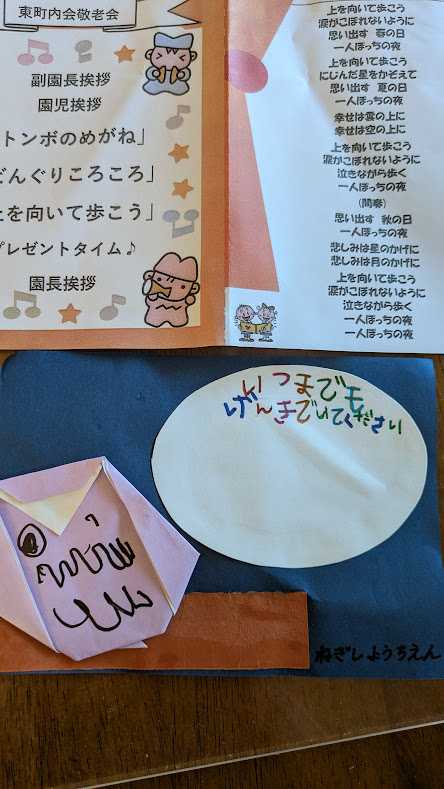 東町内会敬老会
副園長挨拶
園児挨拶
トンボのめがね」
どんぐりころころ」
上を向いて歩こう」
プレゼントタイム♪
園長挨拶
上を向いて歩こう
涙がこぼれないように
思い出す 春の日
一人ぼっちの夜
上を向いて歩こう
にじんだ星をかぞえて
思い出す 夏の日
一人ぼっちの夜
幸せは雲の上に
幸せは空の上に
上を向いて歩こう
涙がこぼれないように
泣きながら歩く
一人ぼっちの夜
(間奏)
思い出す 秋の日
一人ぼっちの夜
悲しみは星のかげに
悲しみは月のかげに
上を向いて歩こう
涙がこぼれないように
泣きながら歩く
一人ぼっちの夜
一人ぼっちの夜
いつまでも
げんきでいてください
ねぎしようちえん